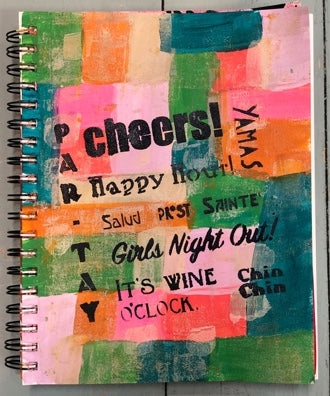 PAR-TAY
cheers!
YAMAS
Happy Hour!
Salud PROST SAINTE
Girls Night Out!
IT'S WINE
O'CLOCK.
Chin
Chin